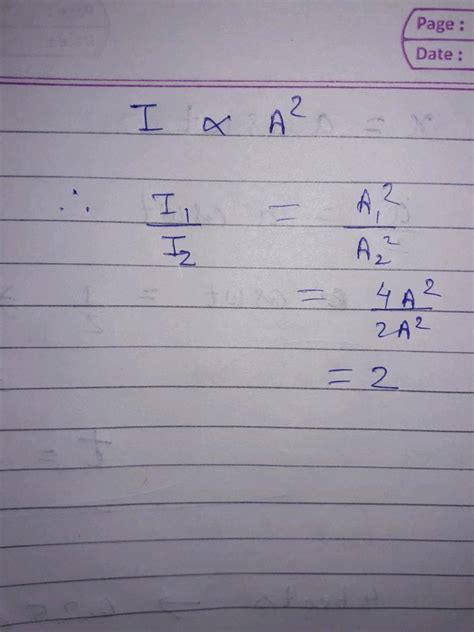 Page :
Date :
I ∝ A²
∴ I₁/I₂ = A₁²/A₂²
= 4A²/2A²
= 2